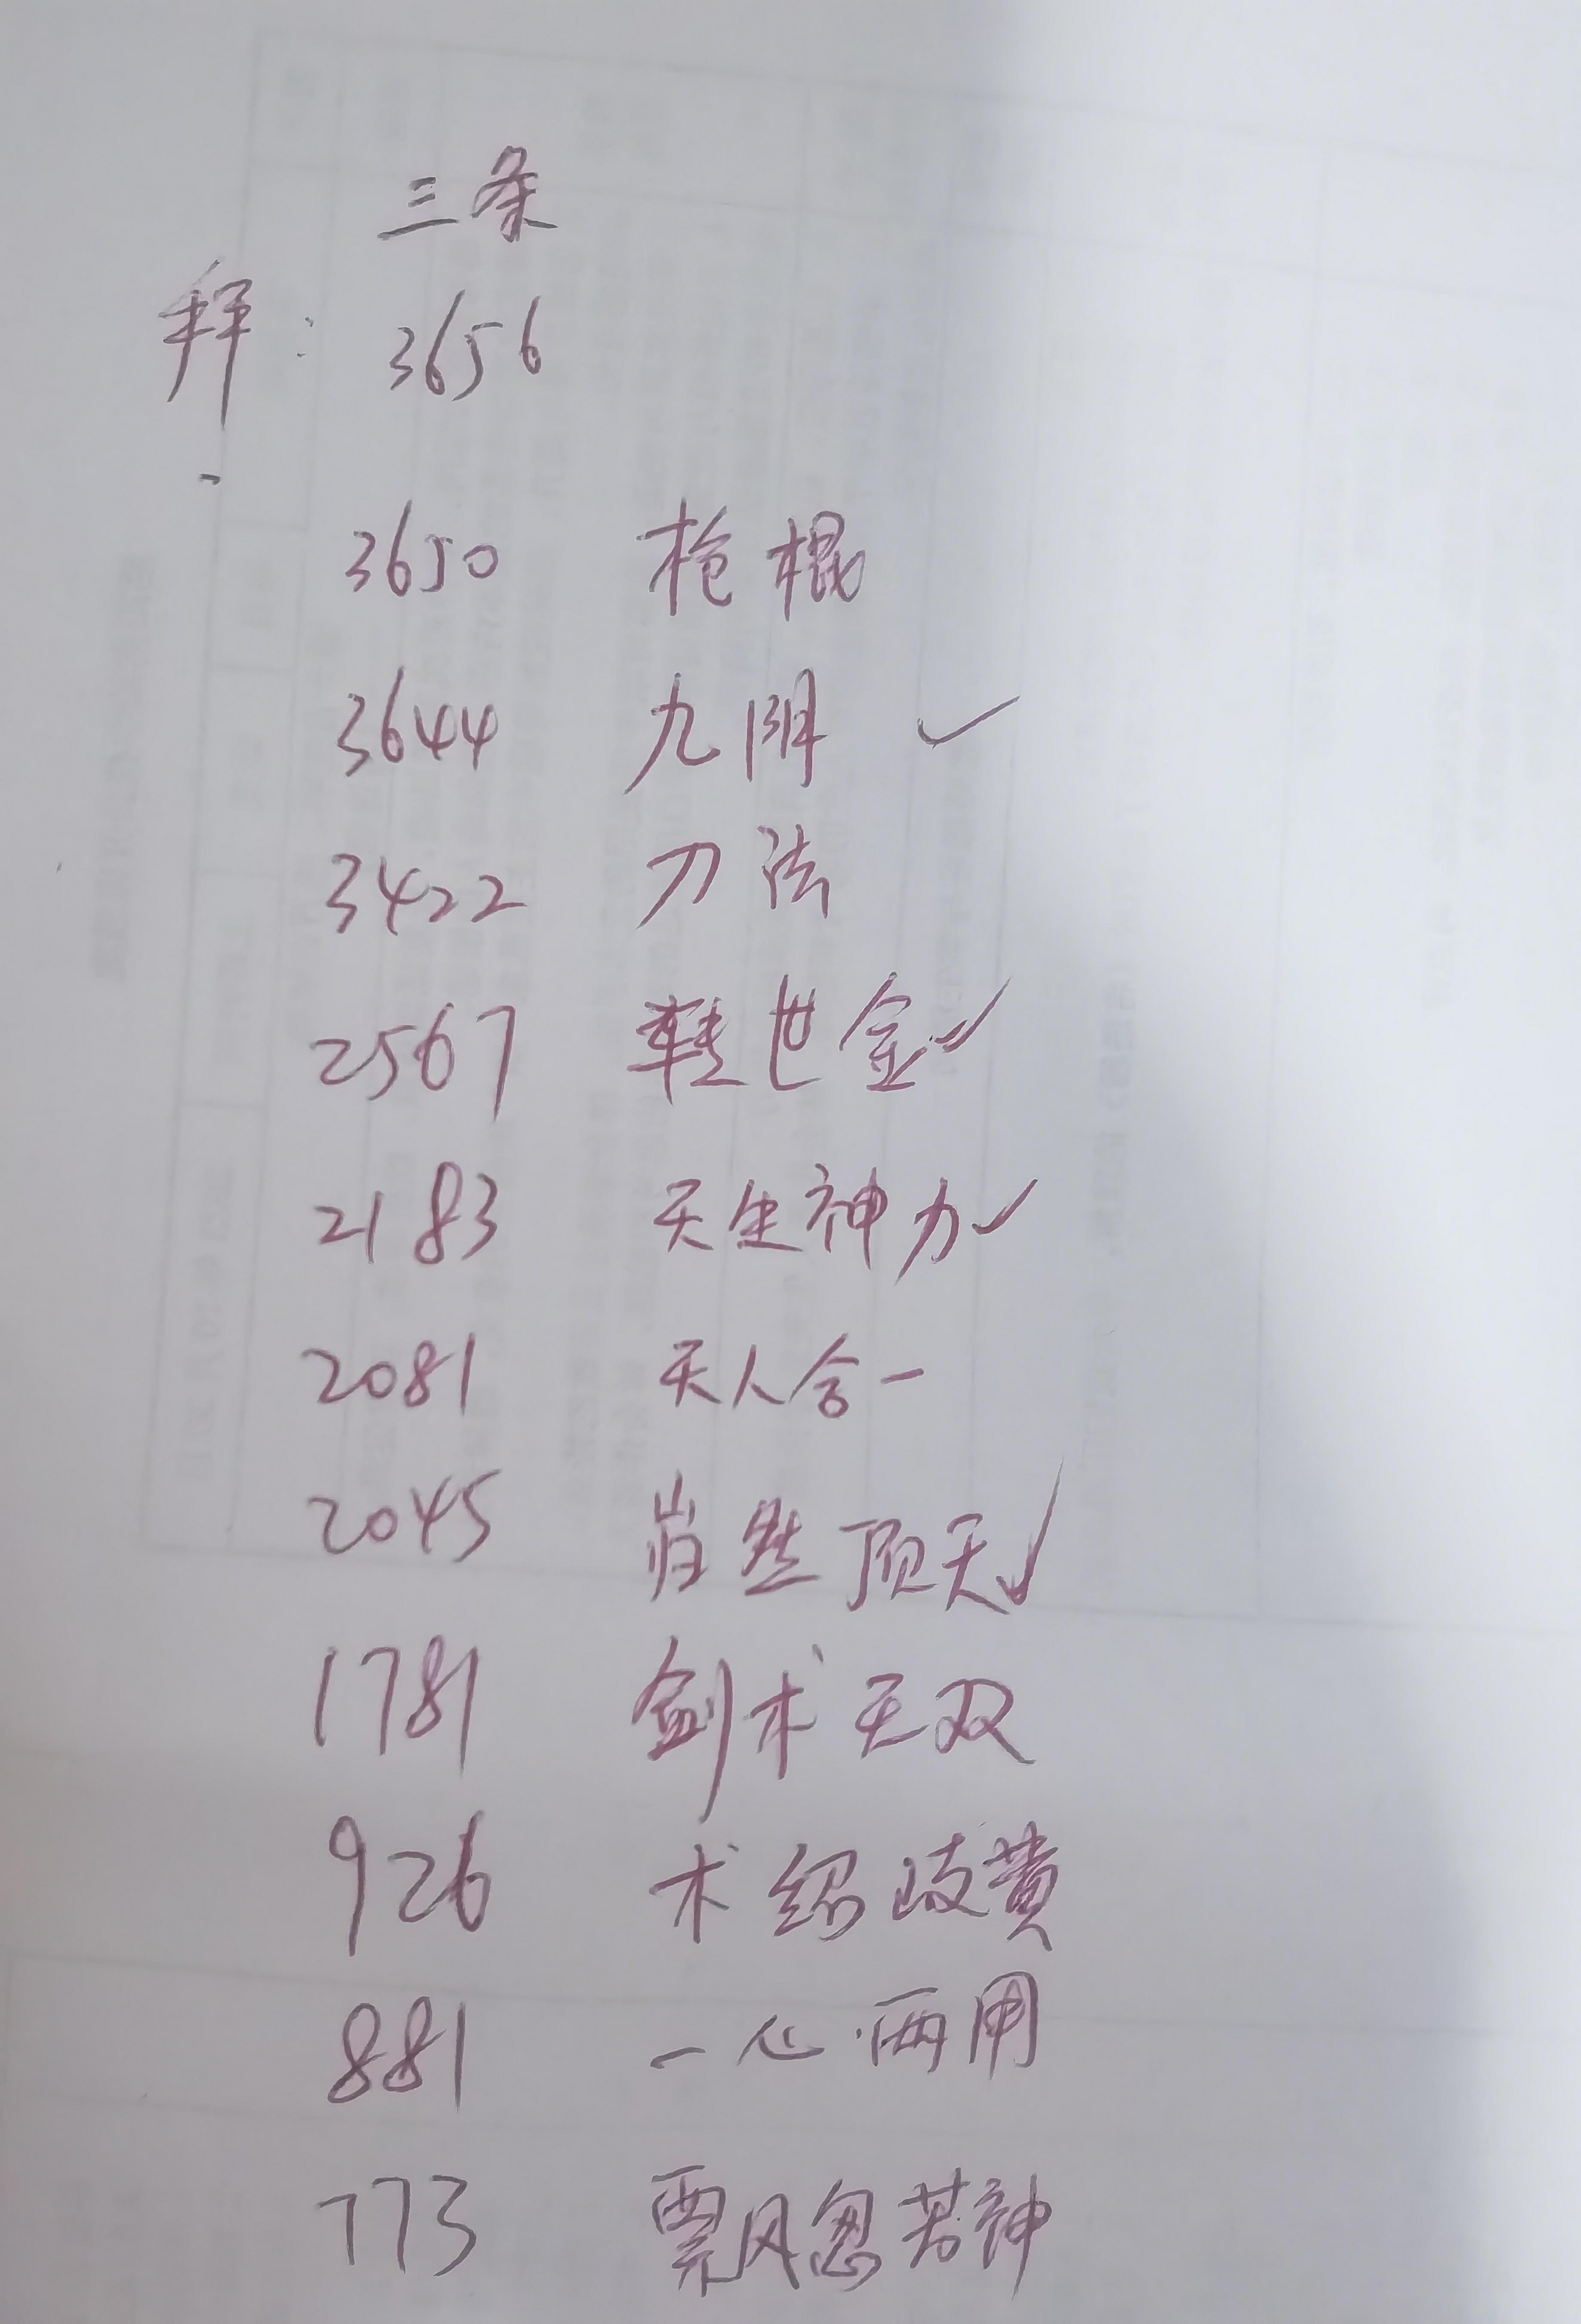 三条
拜: 3656
3650 枪棍
3644 九阴 ✓
3422 刀法
2567 转世金 ✓
2183 天生神力 ✓
2081 天人合一
2045 岿然顶天 ✓
1781 剑术无双
926 术绍岐黄
881 一心两用
773 飘风忽若神